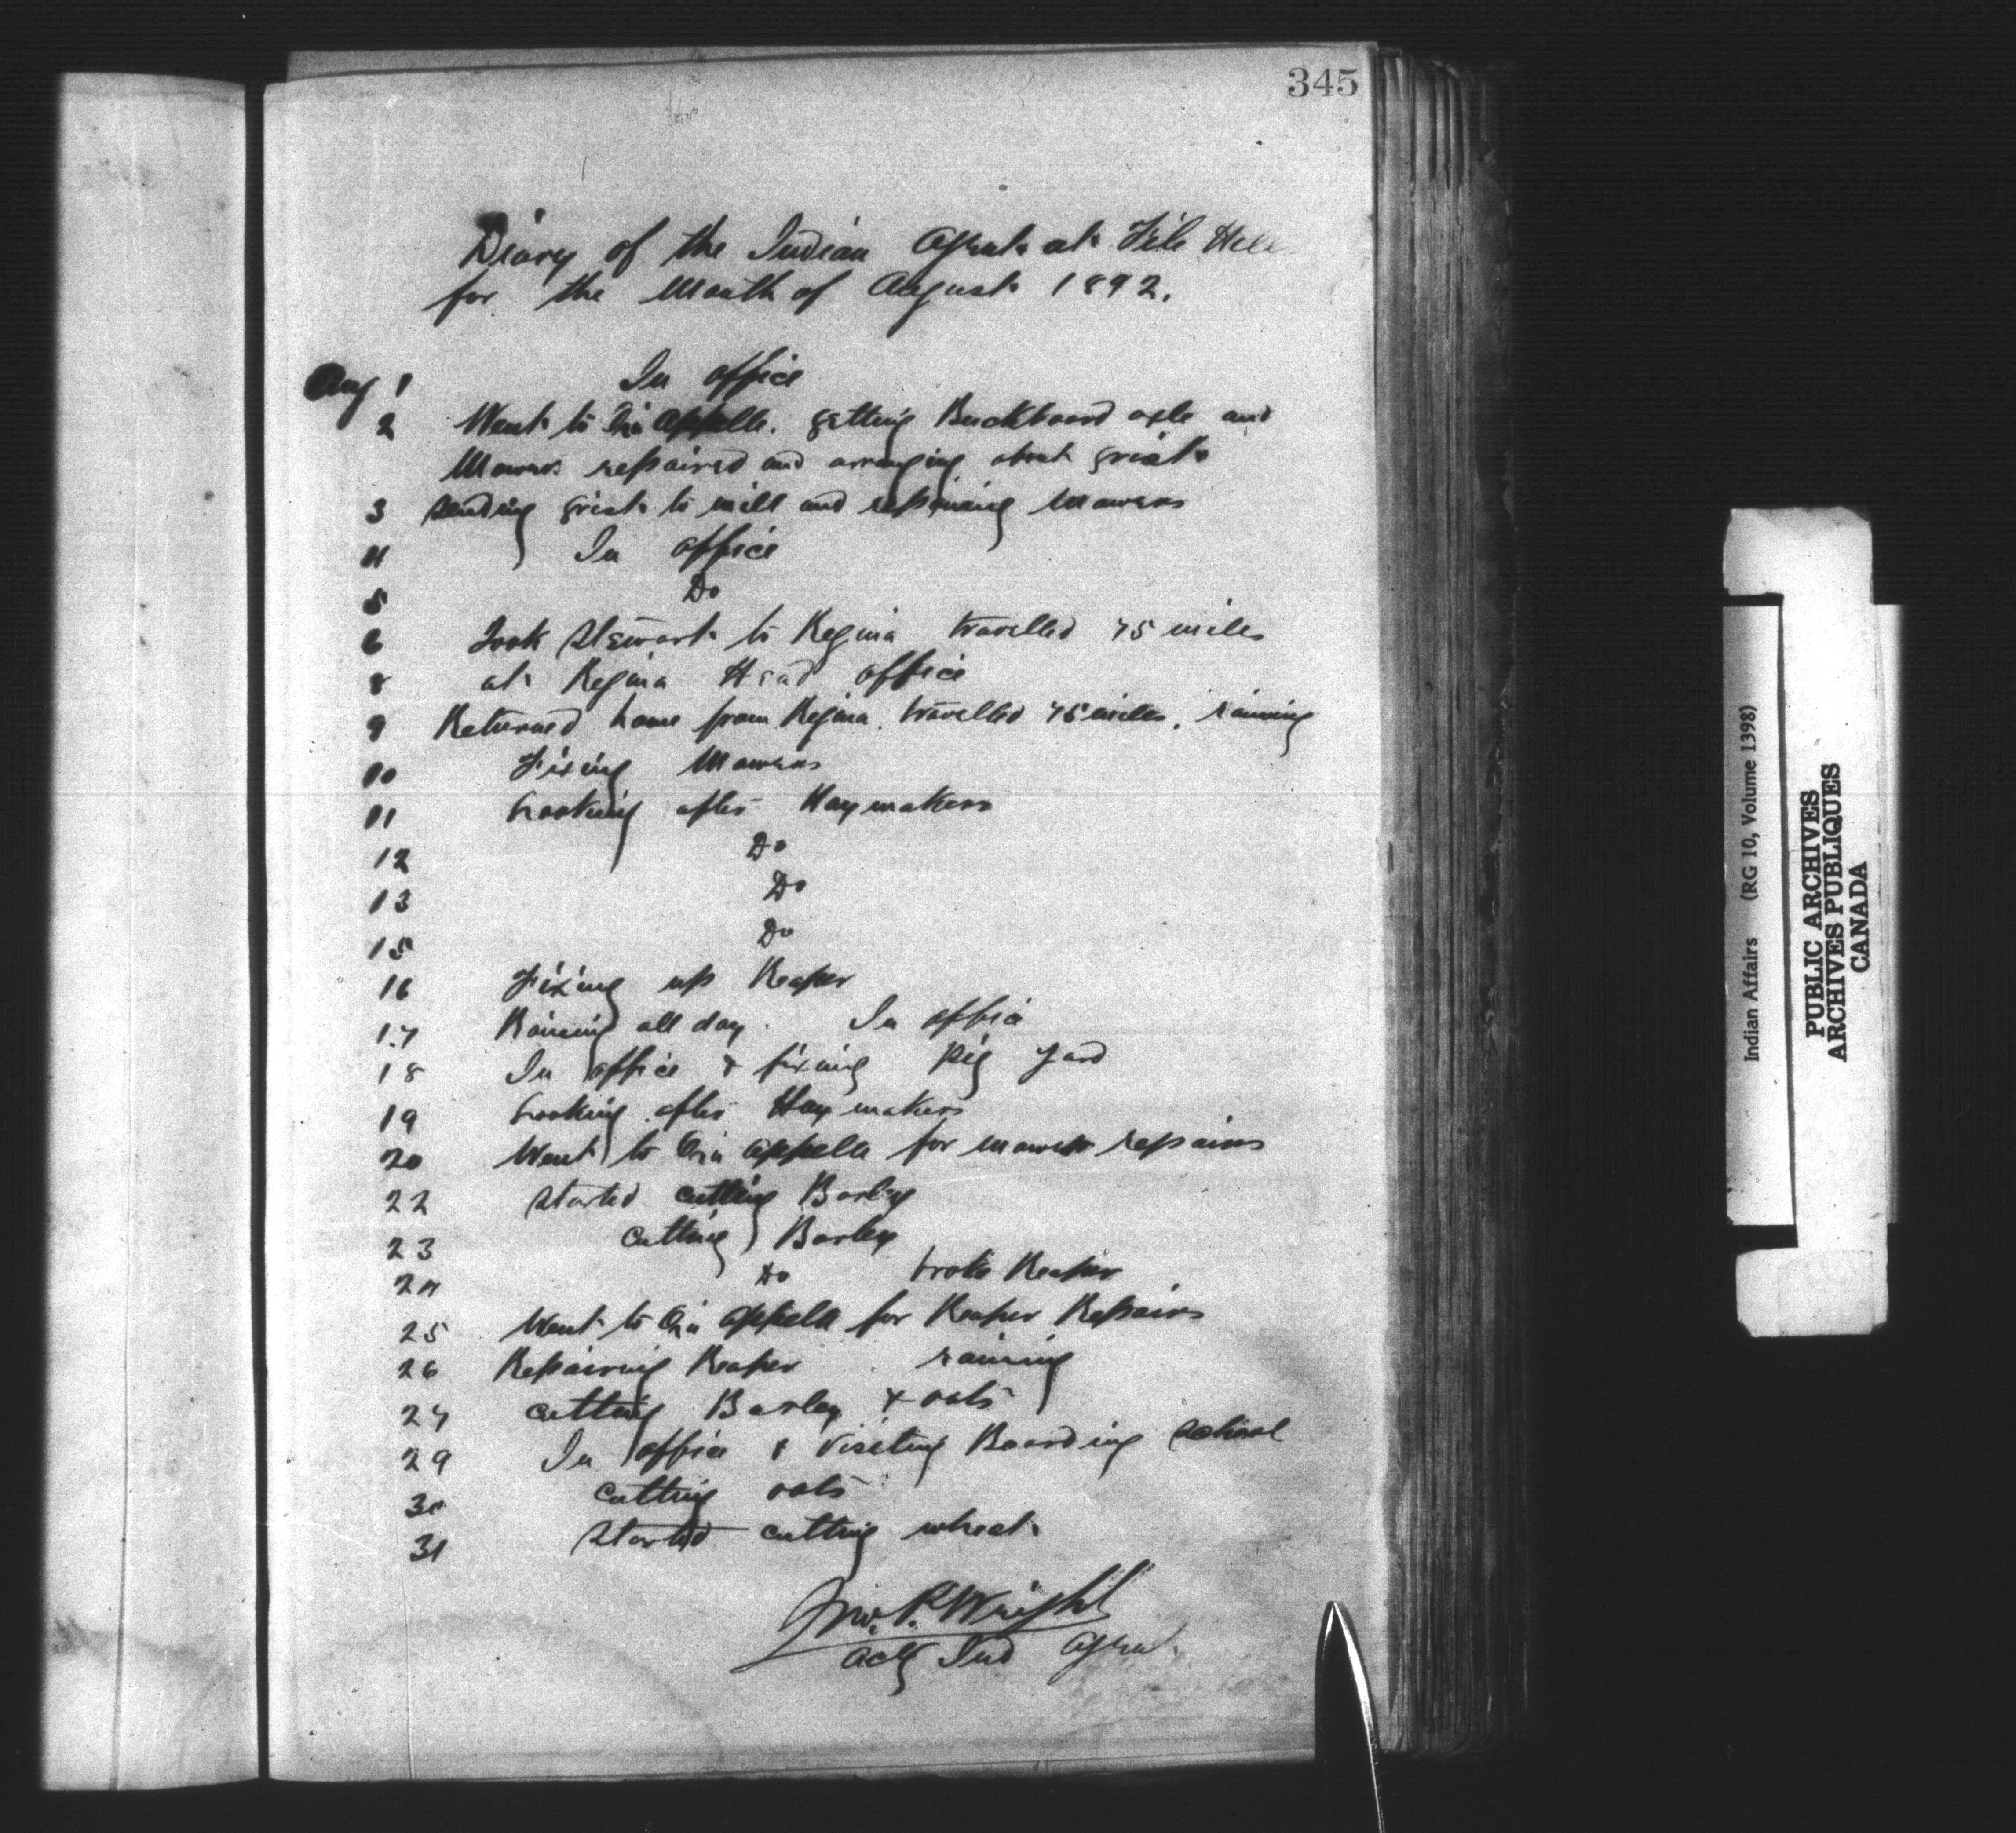 345
Diary of the Indian Agent at File Hills
for the Month of August 1892.
Aug 1 In office
2 Went to Qu Appelle. getting Buckboard axle and
Mowers repaired and arranging about grist
3 Sending grist to mill and repairing Mowers
4 In office
5 Do
6 Took Stewart to Regina travelled 75 miles
8 at Regina Head office
9 Returned home from Regina. travelled 75 miles. raining
10 Fixing Mowers
11 Looking after Haymakers
12 Do
13 Do
15 Do
16 Fixing up Reaper
17 Raining all day. In office
18 In office & fixing Pig yard
19 Looking after Hay makers
20 Went to Qu Appelle for mower repairs
22 Started cutting Barley
23 cutting Barley
24 Do broke Reaper
25 Went to Qu Appelle for Reaper Repairs
26 Repairing Reaper raining
27 cutting Barley & oats
29 In office & visiting Boarding school
30 cutting oats
31 Started cutting wheat
Jno. P. Wright
actg Ind Agent.
Indian Affairs (RG 10, Volume 1398)
PUBLIC ARCHIVES
ARCHIVES PUBLIQUES
CANADA